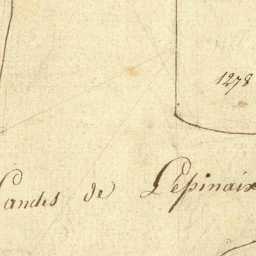 1278
Landes de Lépinaix